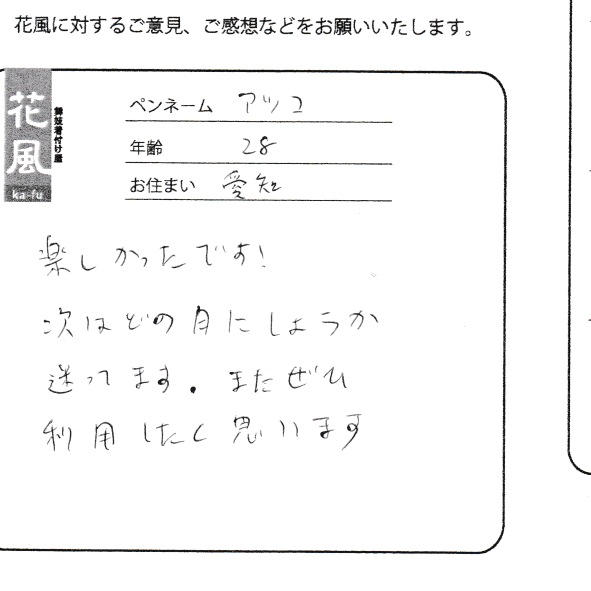 花風に対するご意見、ご感想などをお願いいたします。
花風
舞妓着付け屋
ka-fu
ペンネーム アツコ
年齢 28
お住まい 愛知
楽しかったです!
次はどの月にしようか
迷ってます。またぜひ
利用したく思います